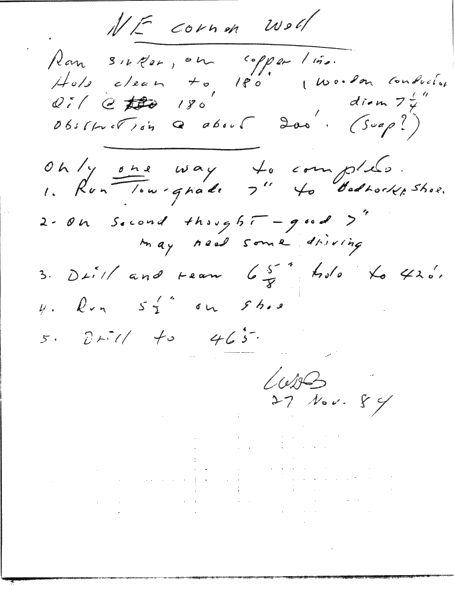 NE corner well
Ran sinker, on copper line.
Hole clean to 180' , Wooden conductor
Oil @ 180' diam 7 1/4"
Obstruction @ about 200'. (Swap?)
Only one way to complete.
1. Run low-grade 7" to Bedrock & shoe.
2- On second thought - good 7"
may need some driving
3. Drill and ream 6 5/8" hole to 420'.
4. Run 5 1/2" on shoe
5. Drill to 465'.
27 Nov. 84